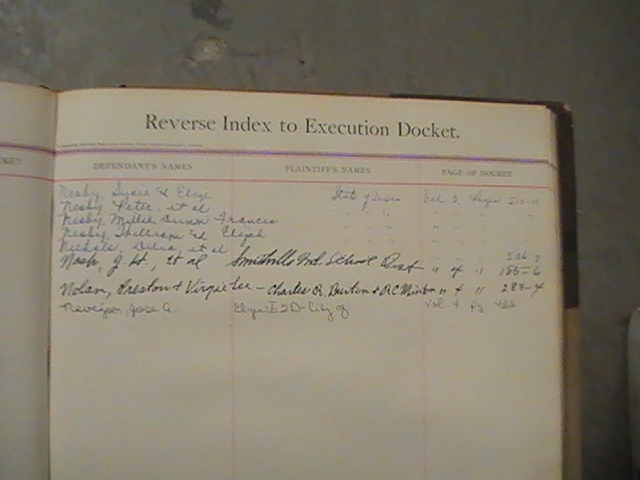 Reverse Index to Execution Docket.
DEFENDANT'S NAMES PLAINTIFF'S NAMES PAGE OF DOCKET
Nesby, Susie Ed State of Texas Vol 3, Pages
Nesby, Pete, et al " " " " "
Nesby, Millie Dunn Frances " " " " "
Nesby, William Ed Elijah " " " " "
Nichols, Delia, et al
Nash, J. H., et al Smithville Ind. School Dist " 4 " 185-6
Nolan, Preston & Virgie Lee - Charles R. Burton & R.C. Minton " 4 " 283-4
Jose A. Elgin I S D - City of Vol 4 Pg